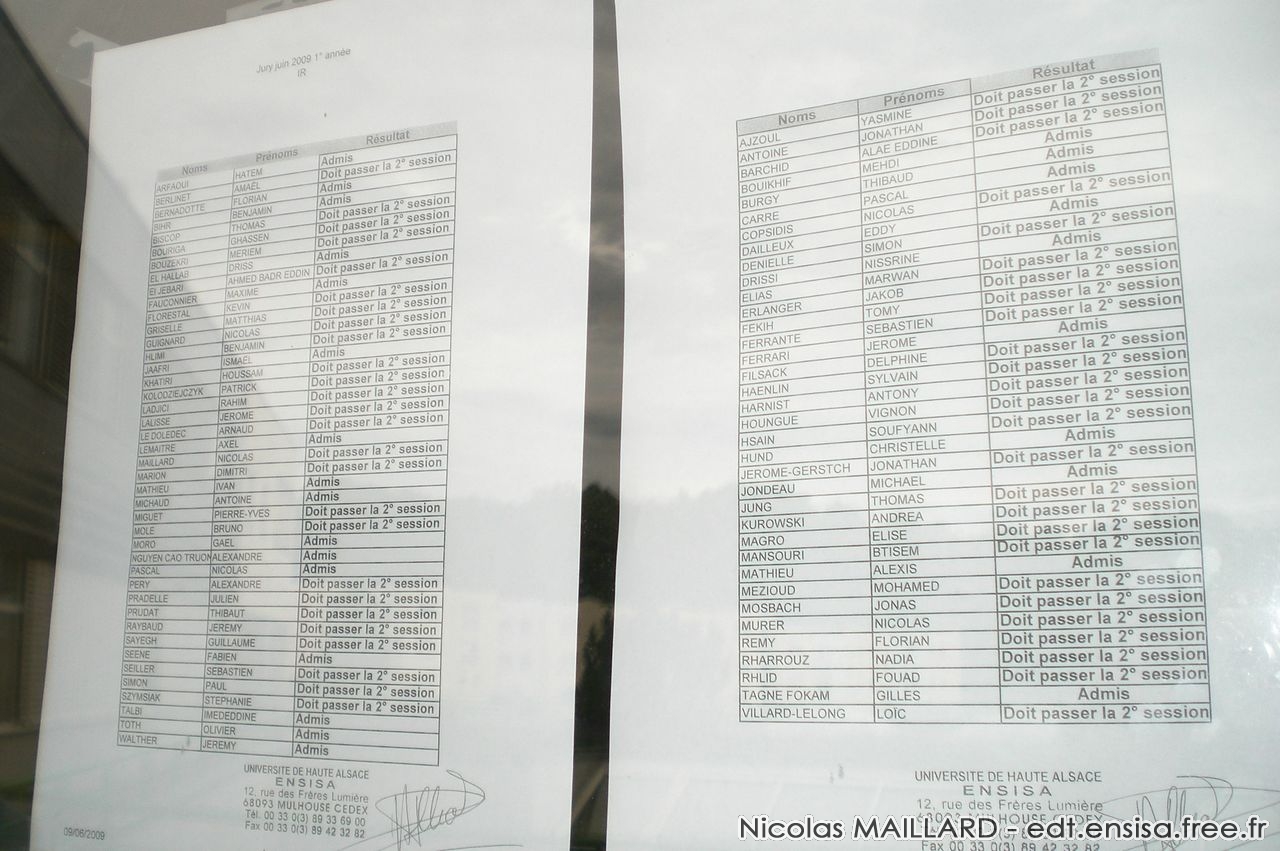 Jury juin 2009 1° année
IR
Noms Prénoms Résultat
ARFAOUI HATEM Admis
BERLINET AMAËL Doit passer la 2° session
BERNADOTTE FLORIAN Admis
BIHR BENJAMIN Admis
BISCOP THOMAS Doit passer la 2° session
BOURIGA GHASSEN Doit passer la 2° session
BOUZEKRI MERIEM Doit passer la 2° session
EL HALLAB DRISS Admis
El JEBARI AHMED BADR EDDIN Doit passer la 2° session
FAUCONNIER MAXIME Admis
FLORESTAL KEVIN Doit passer la 2° session
GRISELLE MATTHIAS Doit passer la 2° session
GUIGNARD NICOLAS Doit passer la 2° session
HLIMI BENJAMIN Doit passer la 2° session
JAAFRI ISMAEL Admis
KHATIRI HOUSSAM Doit passer la 2° session
KOLODZIEJCZYK PATRICK Doit passer la 2° session
LADJICI RAHIM Doit passer la 2° session
LALISSE JEROME Doit passer la 2° session
LE DOLEDEC ARNAUD Doit passer la 2° session
LEMAITRE AXEL Admis
MAILLARD NICOLAS Doit passer la 2° session
MARION DIMITRI Doit passer la 2° session
MATHIEU IVAN Admis
MICHAUD ANTOINE Admis
MIGUET PIERRE-YVES Doit passer la 2° session
MOLE BRUNO Doit passer la 2° session
MORO GAEL Admis
NGUYEN CAO TRUON ALEXANDRE Admis
PASCAL NICOLAS Admis
PERY ALEXANDRE Doit passer la 2° session
PRADELLE JULIEN Doit passer la 2° session
PRUDAT THIBAUT Doit passer la 2° session
RAYBAUD JEREMY Doit passer la 2° session
SAYEGH GUILLAUME Doit passer la 2° session
SEENE FABIEN Admis
SEILLER SEBASTIEN Doit passer la 2° session
SIMON PAUL Doit passer la 2° session
SZYMSIAK STEPHANIE Doit passer la 2° session
TALBI IMEDEDDINE Admis
TOTH OLIVIER Admis
WALTHER JEREMY Admis
UNIVERSITE DE HAUTE ALSACE
ENSISA
12, rue des Frères Lumière
68093 MULHOUSE CEDEX
Tél. 00 33 0(3) 89 33 69 00
Fax 00 33 0(3) 89 42 32 82
09/06/2009
Noms Prénoms Résultat
AJZOUL YASMINE Doit passer la 2° session
ANTOINE JONATHAN Doit passer la 2° session
BARCHID ALAE EDDINE Doit passer la 2° session
BOUIKHIF MEHDI Admis
BURGY THIBAUD Admis
CARRE PASCAL Admis
COPSIDIS NICOLAS Doit passer la 2° session
DAILLEUX EDDY Admis
DENIELLE SIMON Doit passer la 2° session
DRISSI NISSRINE Admis
ELIAS MARWAN Doit passer la 2° session
ERLANGER JAKOB Doit passer la 2° session
FEKIH TOMY Doit passer la 2° session
FERRANTE SEBASTIEN Doit passer la 2° session
FERRARI JEROME Admis
FILSACK DELPHINE Doit passer la 2° session
HAENLIN SYLVAIN Doit passer la 2° session
HARNIST ANTONY Doit passer la 2° session
HOUNGUE VIGNON Doit passer la 2° session
HSAIN SOUFYANN Doit passer la 2° session
HUND CHRISTELLE Admis
JEROME-GERSTCH JONATHAN Doit passer la 2° session
JONDEAU MICHAEL Admis
JUNG THOMAS Doit passer la 2° session
KUROWSKI ANDREA Doit passer la 2° session
MAGRO ELISE Doit passer la 2° session
MANSOURI BTISEM Doit passer la 2° session
MATHIEU ALEXIS Admis
MEZIOUD MOHAMED Doit passer la 2° session
MOSBACH JONAS Doit passer la 2° session
MURER NICOLAS Doit passer la 2° session
REMY FLORIAN Doit passer la 2° session
RHARROUZ NADIA Doit passer la 2° session
RHLID FOUAD Doit passer la 2° session
TAGNE FOKAM GILLES Admis
VILLARD-LELONG LOÏC Doit passer la 2° session
UNIVERSITE DE HAUTE ALSACE
ENSISA
12, rue des Frères Lumière
68093 MULHOUSE CEDEX
Fax 00 33 0(3) 89 42 32 82
Nicolas MAILLARD - edt.ensisa.free.fr